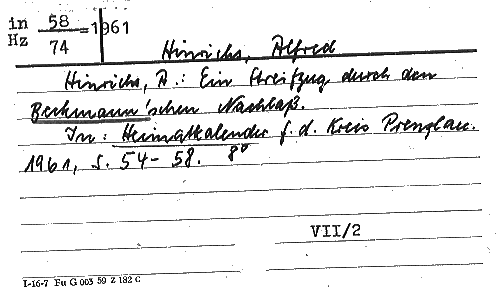 in 58 =1961
Hz 74
Hinrichs, Alfred
Hinrichs, A.: Ein Streifzug durch den
Beckmann'schen Nachlaß.
In: Heimatkalender f. d. Kreis Prenzlau.
1961, S. 54-58. 8°
VII/2
I-16-7 Fu G 003 59 Z 182 C